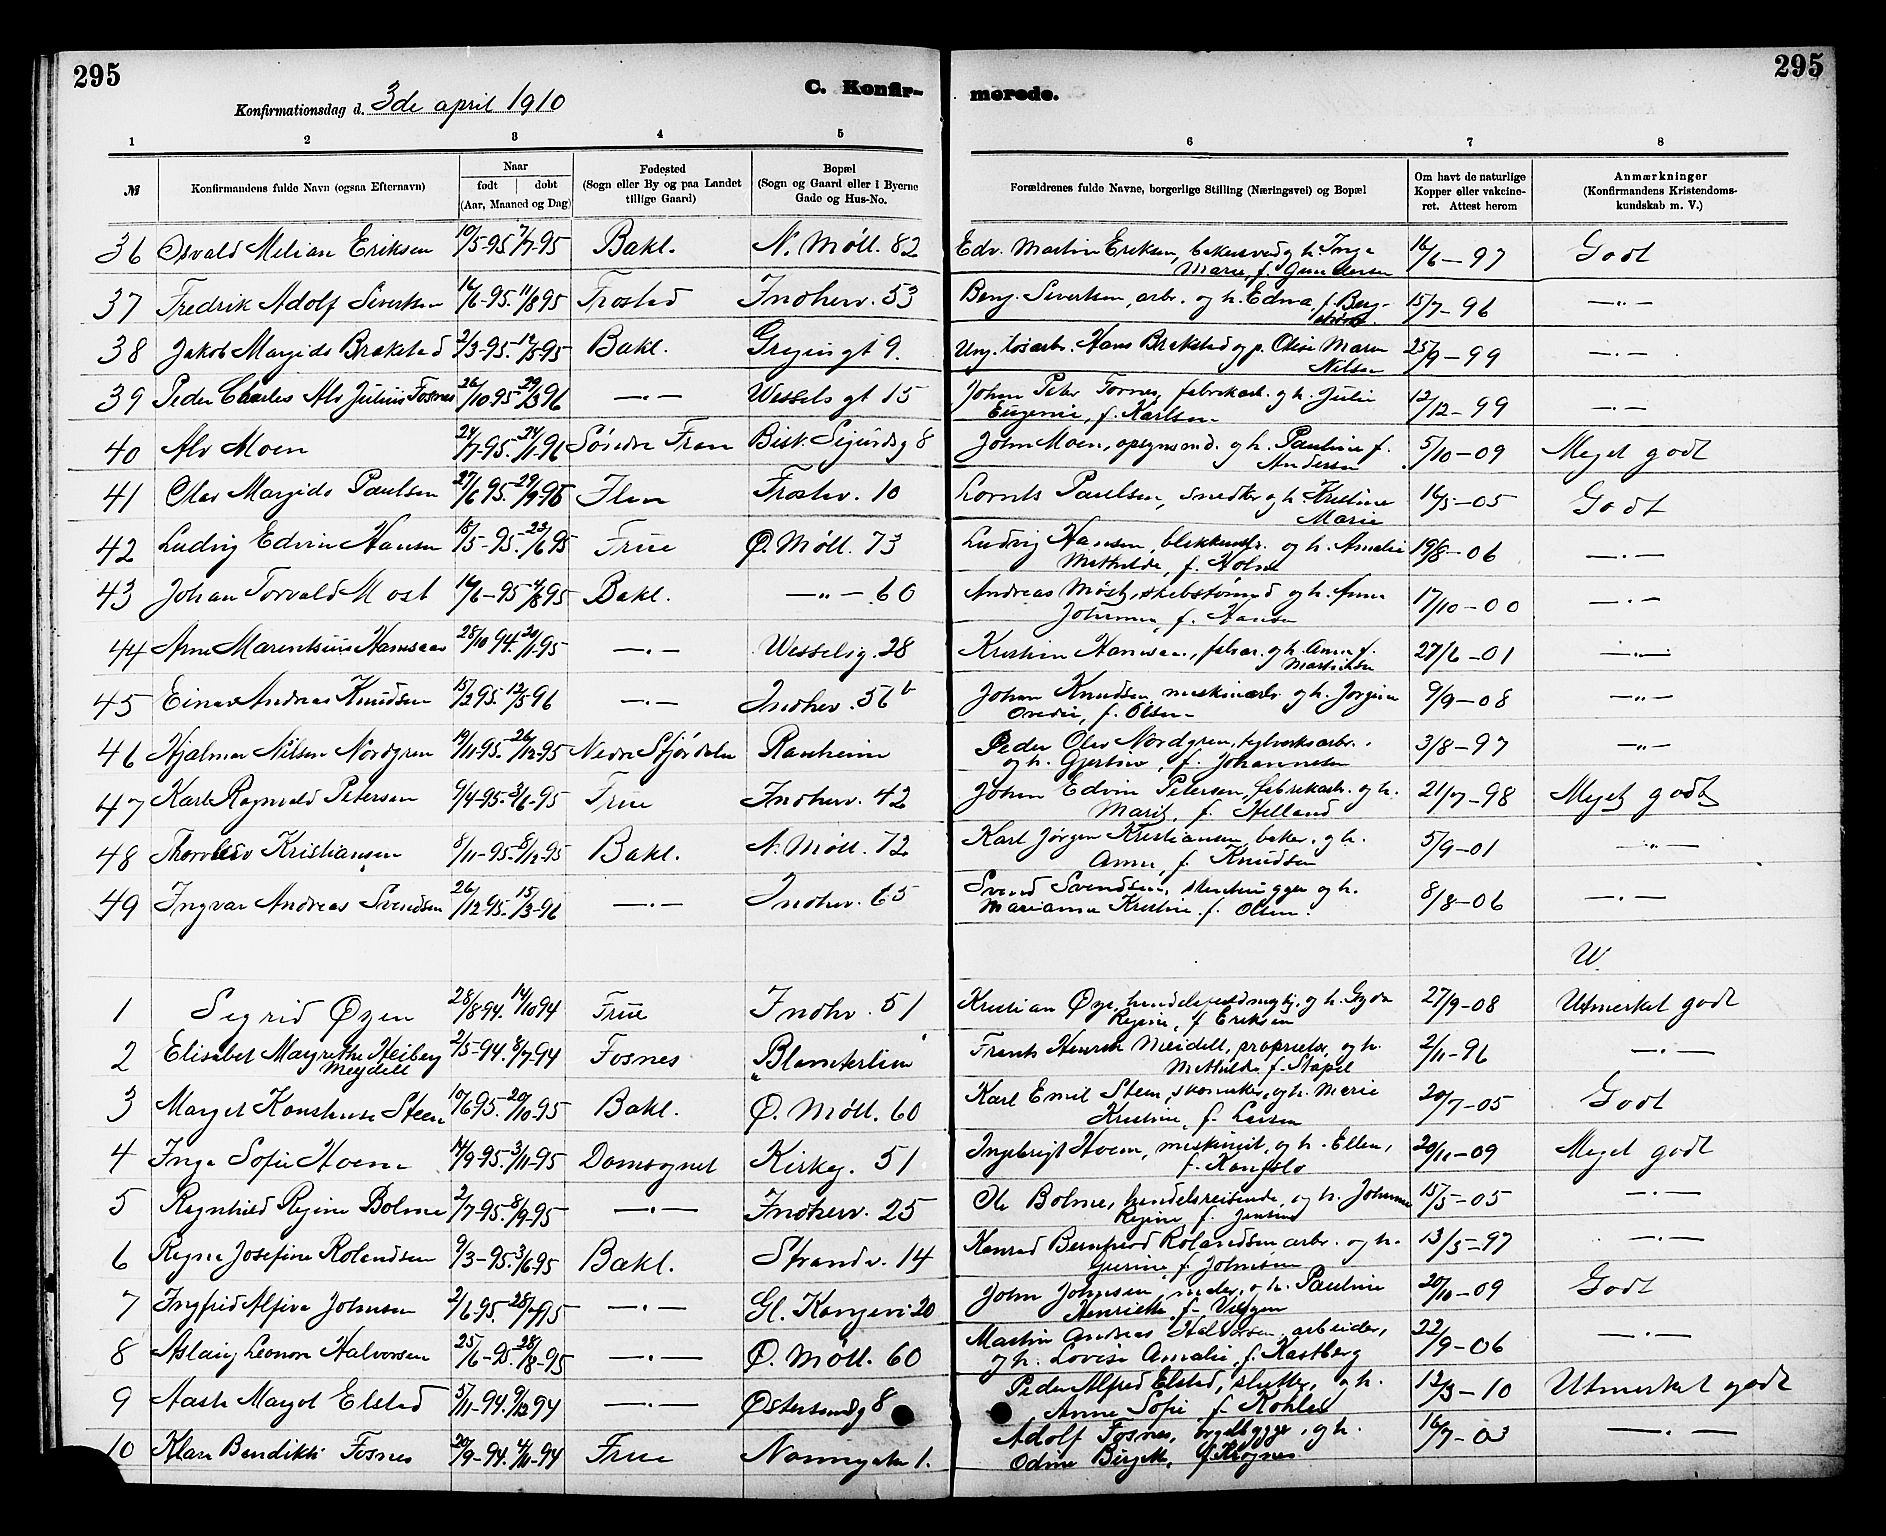 295
295
Konfirmationsdag d. 3de april 1910
C. Konfir-
merede.
1 2 3 4 5 6 7 8
№
Konfirmandens fulde Navn (ogsaa Efternavn)
Naar
født | døbt
(Aar, Maaned og Dag)
Fødested
(Sogn eller By og paa Landet
tillige Gaard)
Bopæl
(Sogn og Gaard eller i Byerne
Gade og Hus-No.
Forældrenes fulde Navne, borgerlige Stilling (Næringsvei) og Bopæl
Om havt de naturlige
Kopper eller vakcine-
ret. Attest herom
Anmærkninger
(Konfirmandens Kristendoms-
kundskab m. V.)
36 Osvald Milian Eriksen 10/5-95. 7/7-95 Bakl. N. Møll. 82 Edv. Martin Eriksen, og h. Inga 16/6-97 Godt
Marie, f. Gundersen
37 Fredrik Adolf Sivertsen 16/6-95. 11/8 95 Frosted Indherv. 53 Benj. Sivertsen, arb. og h. Edna, f. Berg- 15/7-96 —"—
38 Jakob Margido Brekstad 2/3-95. 12/5-95 Bakl. Gregingt 9. Ung. løsarb. Hans Brekstad og p. Oline Marie 25/9-99 —"—
Nilsen
39 Peder Charles Alv Julius Fosnes 26/10 95 29/3 96 —"— Wessels gt 15 Johan Peter Fornes, fabrikarb. og h. Julie 12/12-99 —"—
Eugenie, f. Karlsen
40 Alv Moen 24/7-95. 24/1-96 Søndre Fron Bisk. Sigurdsg 8 John Moen, opsynsmd. og h. Pauline f. 5/10-09 Meget godt
Andersen
41 Olav Margido Paulsen 27/6 95. 29/9 95 Ilen Frostav. 10 Lornts Paulsen, snedker og h. Kristine 16/5-05 Godt
Marie
42 Ludvig Edvin Hansen 18/5-95. 23/6 95 Frue Ø. Møll. 73 Ludvig Hansen, og h. Amalie 19/8-06 —"—
Mathilde, f. Holm
43 Johan Torvald Møst 16/6-95 4/8 95 Bakl. —"— 60 Andreas Møst, og h. Anna 17/10-00 —"—
Johanna, f. Hansen
44 Arne Marentius Hansen 28/10 94. 20/1-95 —"— Wesselsg. 28 Kristian Hansen, og h. Anna f. 27/6-01 —"—
45 Einar Andreas Knudsen 15/2 95. 12/5 96 —"— Indherv. 56 b Johan Knudsen, maskinarb. og h. Jorgine 9/9-08 —"—
f. Olsen
46 Hjalmar Nilsen Nordgren 19/11-95. 26/12-95 Nedre Stjørdalen Ranheim Peder Olav Nordgren, teglverksarb. 3/8-97 —"—
og h. Gjertine, f. Johannesen
47 Karl Ragnvald Petersen 9/4-95. 3/6-95 Frue Indherv. 42 Johan Edvin Petersen, fabrikarb. og h. 21/7-98 Meget godt
Marit, f. Helland
48 Thorolv Kristiansen 8/11-95. 8/12-95 Bakl. N. Møll. 72 Karl Jørgen Kristiansen, baker, og h. 5/9-01 —"—
Anna, f. Knudsen
49 Ingvar Andreas Svendsen 26/12-95. 15/3-96 —"— Indher. 65 Svend Svendsen, stenhugger og h. 8/8-06 —"—
Marianna Kristine f. Olsen.
W.
1 Sigrid Øyen 28/8 94. 14/10 94 Frue Indhv. 51 Kristian Øye, og h. Gyda 27/9-08 Utmerket godt
Regine, f Eriksen
2 Elisabet Margrethe Heiberg 2/5-94. 8/7-94 Fosnes Blomsterlien Frants Henrik Meidell, proprietær, og h. 2/11-96 —"—
Meydell Mathilde f. Stapel
3 Margit Konstanse Steen 10/6 95. 20/10-95 Bakl. Ø. Møll. 60 Karl Emil Steen, skomaker, og h. Marie 20/7-05 Godt
Kristine, f. Larsen
4 Inga Sofie Hoem 14/9-95. 3/11-95 Domsognet Kirkeg. 51 Ingebrigt Hoem, maskinist, og h. Ellen, 20/11-09 Meget godt
5 Ragnhild Regine Bolme 2/7-95. 8/9-95 —"— Indherv. 25 Ole Bolme, handelsreisende og h. Johanna 15/5-05 —"—
Regine, f. Jensen
6 Ragna Josefine Rolandsen 9/3-95. 3/6 95 Bakl. Strandv. 14 Konrad Bernhard Rolandsen arb. og h. 13/5-97 —"—
Gurine, f. Johnsen
7 Ingfrid Alfine Johnsen 2/6 95. 28/7 95 —"— Gl. Kongevei 20 John Johnsen, maler, og h. Pauline 20/10-09 Godt
Henriette f.
8 Aslaug Leonora Halvorsen 25/6-95. 28/8-95 —"— Ø. Møll. 60 Martin Andreas Halvorsen arbeider, 22/9-06 —"—
og h. Lovise Amalie, f. Kastberg
9 Aasta Margot Elstad 5/11-94. 9/12 94 —"— Østersundsg 8 Peder Alfred Elstad, slakter, og h. 12/3-10 Utmerket godt
Anna Sofie f. Kohler
10 Klara Bendikte Fosnes 20/9-94. 4/11-94 Frue Nonnegaten 1. Adolf Fosnes, orgelbygger, og h. 16/7-03 —"—
Odine Birgitte, f. Krognes